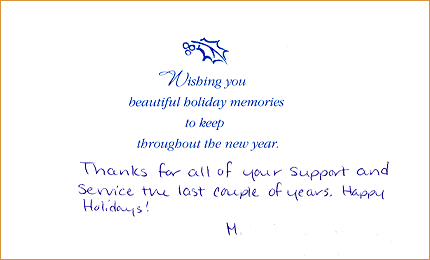 Wishing you
beautiful holiday memories
to keep
throughout the new year.
Thanks for all of your support and
Service the last couple of years. Happy
Holidays!
M.